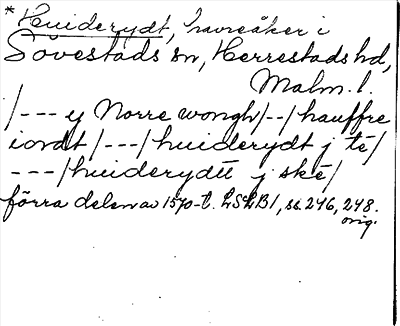 * Huiderydt, havreåker i
Sövestads sn, Herrestads hd,
Malm. l.
/--- y Norre wongh/--/hauffre
iordt/---/huiderydt j té/
---/huiderydtt j ské/
förra delen av 1570-t. LSLB1, ss. 246, 248.
orig.